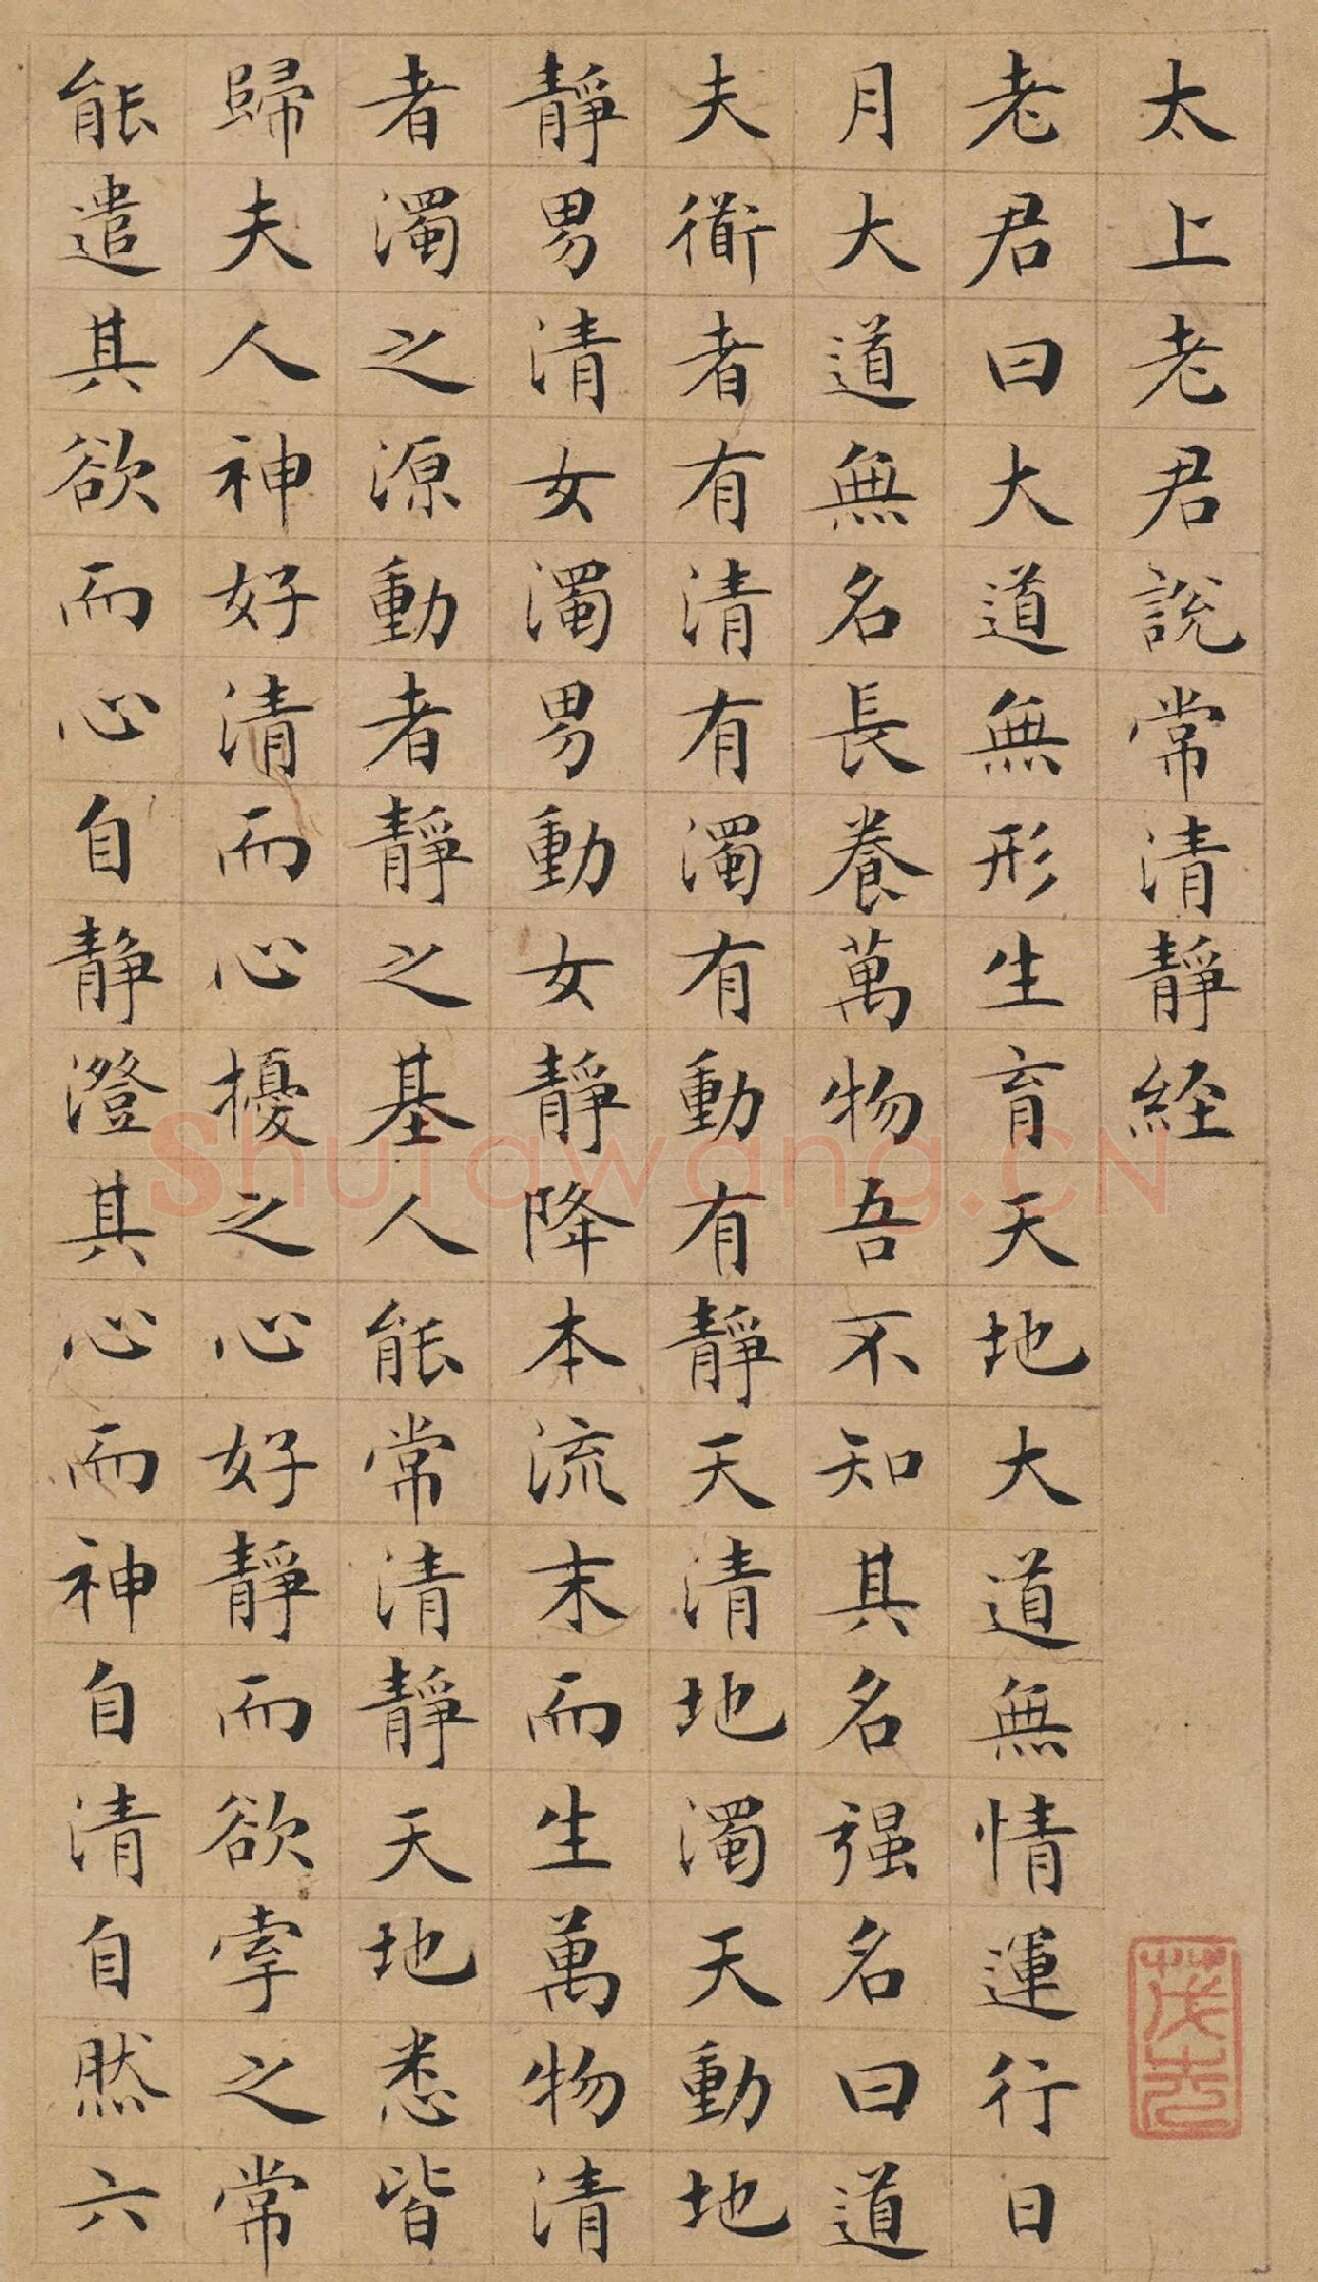 太上老君說常清靜経
老君曰大道無形生育天地大道無情運行日
月大道無名長養萬物吾不知其名强名曰道
夫衟者有清有濁有動有靜天清地濁天動地
靜男清女濁男動女靜降本流末而生萬物清
者濁之源動者靜之基人能常清靜天地悉皆
歸夫人神好清而心擾之心好靜而欲牽之常
能遣其欲而心自静澄其心而神自清自然六
Shufawang.CN